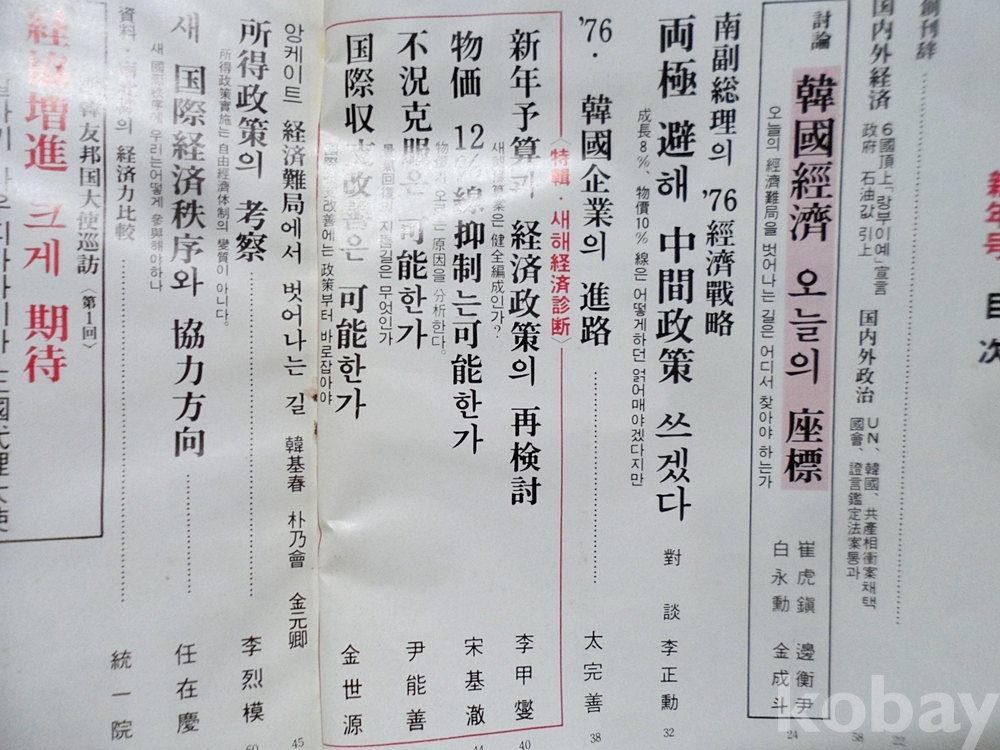 目次
創刊辞
22
国内外経済
6國頂上「랑부이예」宣言
政府 石油값 引上
国内外政治
UN、韓國、共產相衝案採択
國會、證言鑑定法案통과
58
討論
韓國經濟 오늘의 座標
오늘의 經濟難局을 벗어나는 길은 어디서 찾아야 하는가
崔虎鎭 邊衡尹
白永勳 金成斗
24
南副総理의 '76經濟戰略
両極 避해 中間政策 쓰겠다
對談 李正勳
32
成長8%、物價10%線은 어떻게하던 얽어매야겠다지만
'76・韓國企業의 進路
太完善
38
〈特輯・새해経済診断〉
新年予算과 経済政策의 再検討
李甲燮
40
새해豫算案은 健全編成인가?
物価 12%線抑制는可能한가
宋基澈
44
物價가 오르는 原因을 分析한다。
不況克服은 可能한가
尹能善
지름길은 무엇인가
国際収支改善은 可能한가
金世源
改善에는 政策부터 바로잡아야
앙케이트 経済難局에서 벗어나는 길
韓基春 朴乃會 金元卿
45
所得政策의 考察
李烈模
60
所得政策實施는 自由經濟体制의 變質이 아니다。
새 国際経済秩序와 協力方向
任在慶
새 國際秩序에 우리는어떻게 參與해야하나
資料・
의 経済力比較
統一院
韓友邦国大使巡訪〈第1回〉
経協増進 크게 期待
kobay